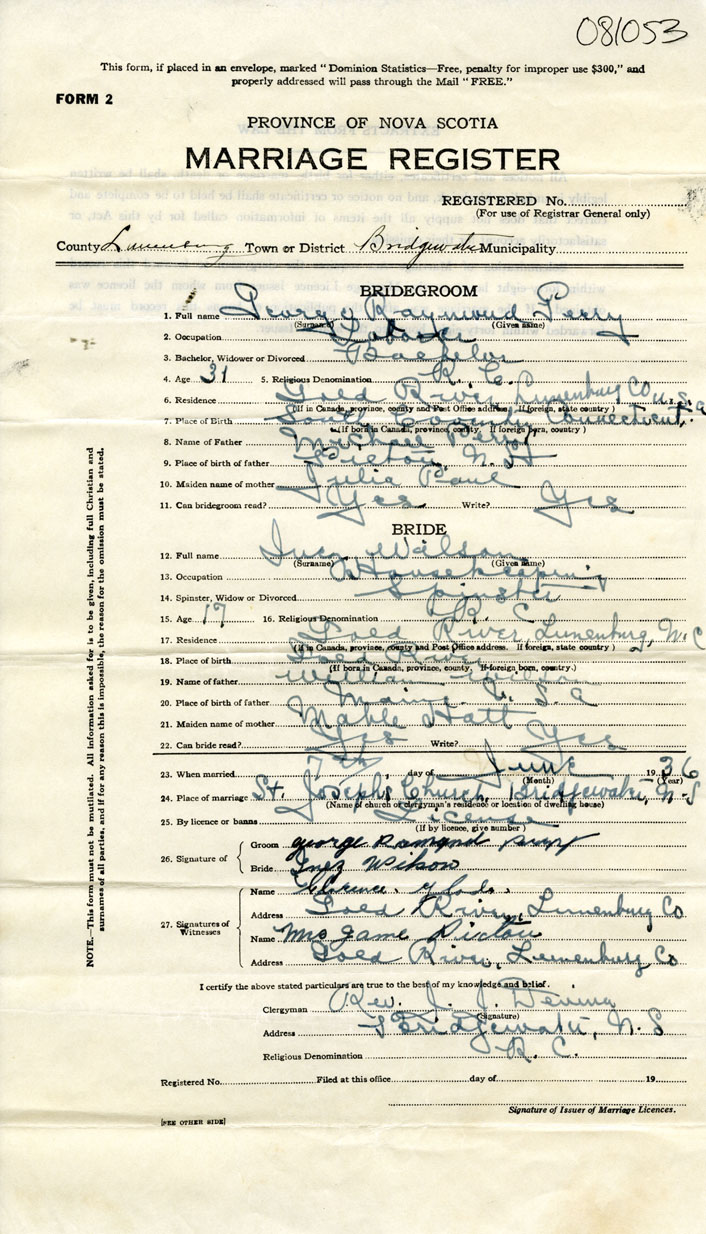 081053
This form, if placed in an envelope, marked "Dominion Statistics—Free, penalty for improper use $300," and
properly addressed will pass through the Mail "FREE."
FORM 2
PROVINCE OF NOVA SCOTIA
MARRIAGE REGISTER
REGISTERED No.
(For use of Registrar General only)
County Lunenburg Town or District Bridgewater Municipality
BRIDEGROOM
1. Full name George Raymond Perry
(Surname) (Given name)
2. Occupation Laborer
3. Bachelor, Widower or Divorced Bachelor
4. Age 31 5. Religious Denomination R. C.
6. Residence Gold River, Lunenburg Co
(If in Canada, province, county and Post Office address. If foreign, state country) U.S.A
7. Place of Birth South Connecticut
(If born in Canada, province, county. If foreign born, country)
8. Name of Father Michael Perry
9. Place of birth of father Pictou, N. S
10. Maiden name of mother Julia Paul
11. Can bridegroom read? Yes Write? Yes
BRIDE
12. Full name Inez Wilson
(Surname) (Given name)
13. Occupation Housekeeping
14. Spinster, Widow or Divorced Spinster
15. Age 17 16. Religious Denomination R. C
17. Residence Gold River, Lunenburg, N.S
(If in Canada, province, county and Post Office address. If foreign, state country)
18. Place of birth Gold River
(If born in Canada, province, county, If foreign born, country.)
19. Name of father William Wilson
20. Place of birth of father Maine U. S. A
21. Maiden name of mother Mable Hatt
22. Can bride read? Yes Write? Yes
23. When married 7th day of June 1936
(Month) (Year)
24. Place of marriage St. Josephs Church, Bridgewater, N-S
(Name of church or clergyman's residence or location of dwelling house)
25. By licence or banns License
(If by licence, give number)
26. Signature of Groom george Ramond
Bride Inez Wilson
27. Signatures of Witnesses
Name Glode
Address Gold River, Lunenburg Co
Name Mrs Pictou
Address Gold River, Lunenburg Co
I certify the above stated particulars are true to the best of my knowledge and belief.
Clergyman Rev. J. J.
(Signature)
Address Bridgewater, N. S
Religious Denomination R. C.
Registered No. Filed at this office day of 19
Signature of Issuer of Marriage Licences.
[SEE OTHER SIDE]
NOTE.—This form must not be mutilated. All information asked for is to be given, including full Christian and
surnames of all parties, and if for any reason this is impossible, the reason for the omission must be stated.